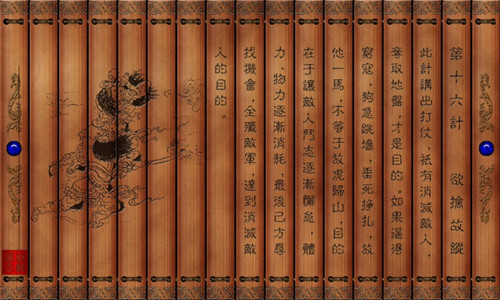 第十六計　欲擒故縱
此計講出打仗，祇有消滅敵人，
奪取地盤，才是目的。如果逼得
窮寇，狗急跳墻，垂死掙扎，故
他一馬，不等于故虎歸山，目的
在于讓敵人鬥志逐漸懈怠，體
力、物力逐漸消耗，最後己方尋
找機會，全殲敵軍，達到消滅敵
人的目的。